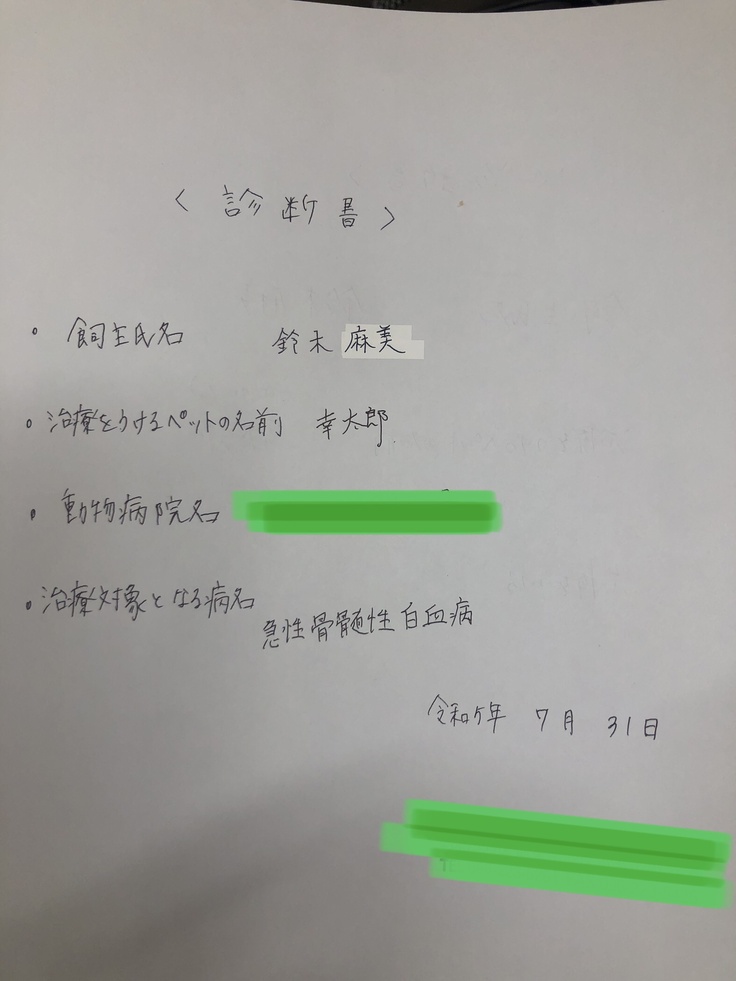 〈診断書〉
・飼主氏名 鈴木麻美
・治療をうけるペットの名前 幸太郎
・動物病院名
・治療対象となる病名
急性骨髄性白血病
令和5年 7月 31日